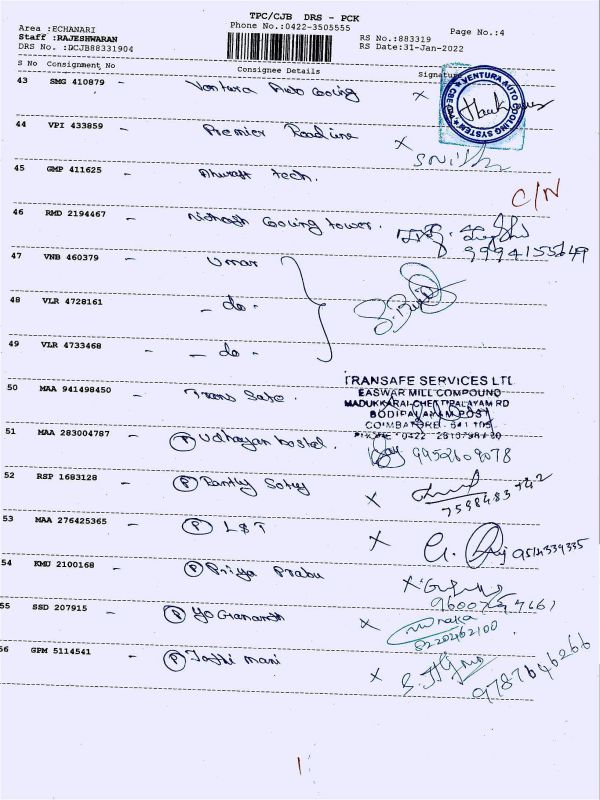 TPC/CJB DRS - PCK
Area :ECHANARI Phone No.:0422-3505555 Page No.:4
Staff :RAJESHWARAN RS No.:883319
DRS No. :DCJB88331904 RS Date:31-Jan-2022
S No Consignment No Consignee Details Signature
43 SMG 410879 - Ventura Auto Cooling X
VENTURA AUTO COOLING SYSTEM
44 VPI 433859 - Premier Roadline X
45 GMP 411625 tech. C/N
46 RMD 2194467 - Cooling tower.
9994155649
47 VNB 460379 - Umar
48 VLR 4728161 - do -
49 VLR 4733468 - - do -
50 MAA 941498450 - Trans Safe.
TRANSAFE SERVICES LTD
EASWAR MILL COMPOUND
MADUKKARAI-CHETTIPALAYAM RD
BODIPALAYAM POST
COIMBATORE - 641 105
51 MAA 283004787 - P Udhayan hostel. 9952609078
52 RSP 1683128 - P X
53 MAA 276425365 - P L&T X 9514339335
54 KMU 2100168 - P Priya Prabu X
55 SSD 207915 - P X
8220462100
56 GPM 5114541 - P mani X
9787646266